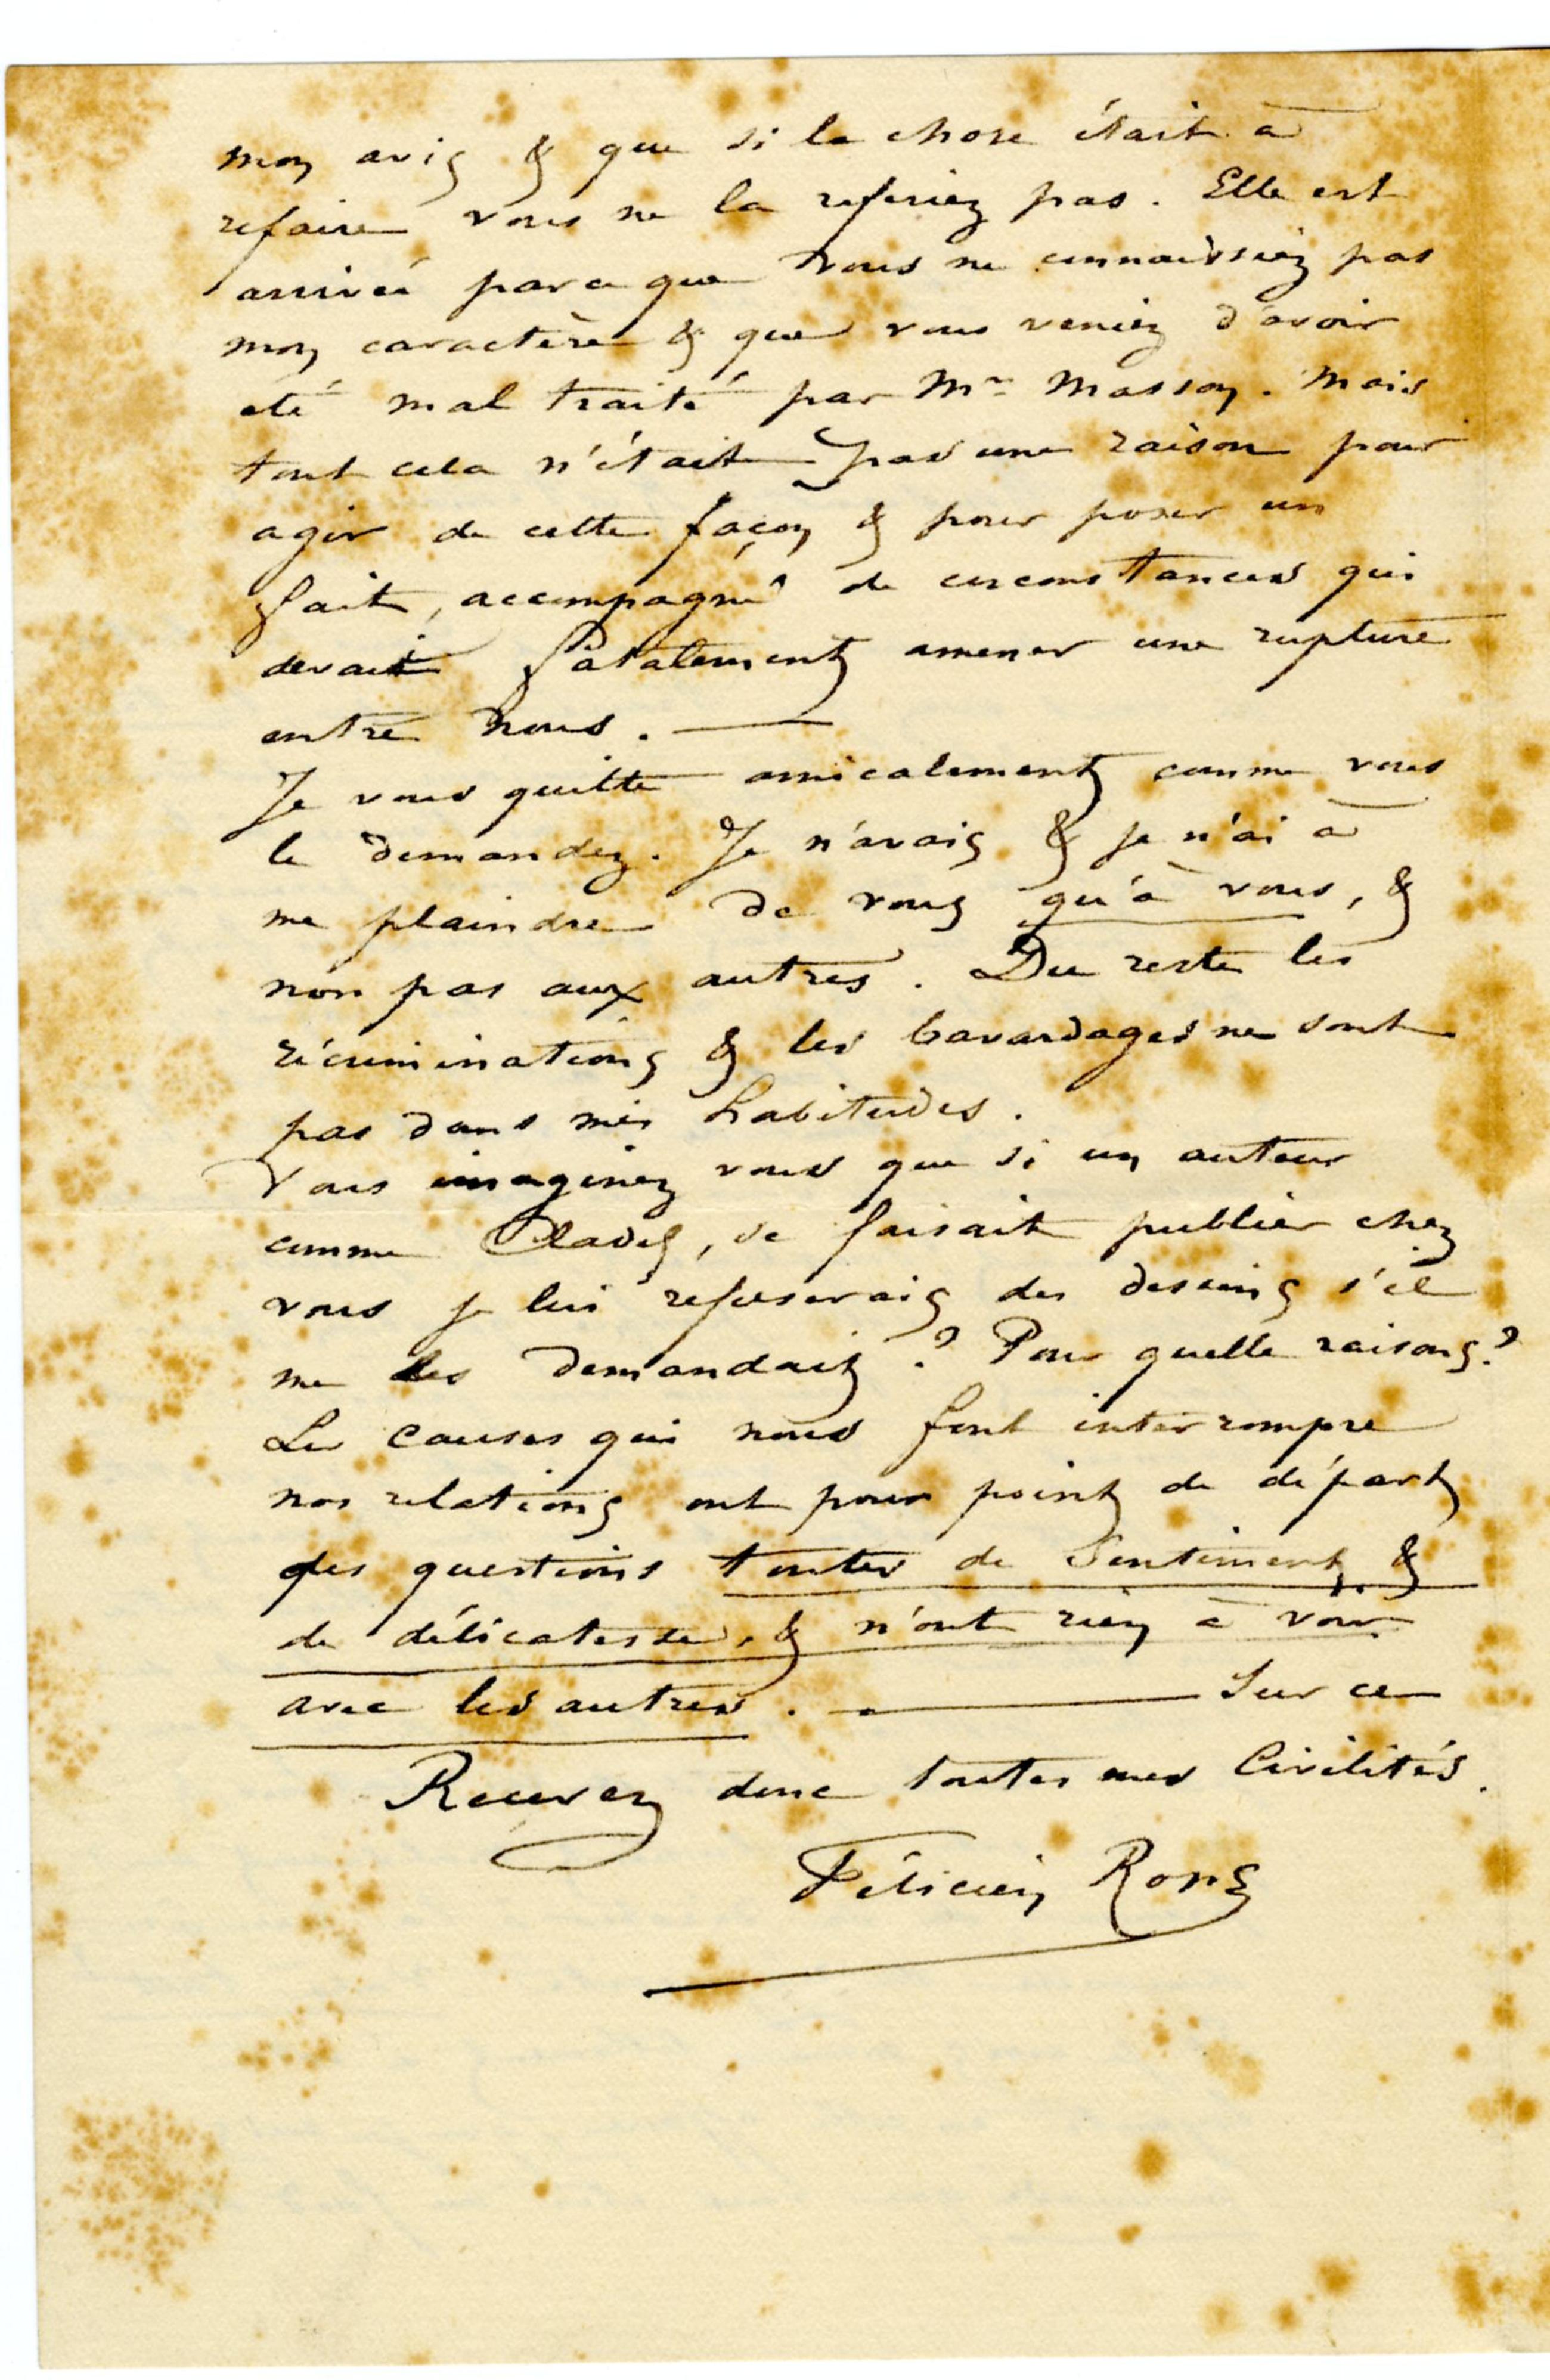 mon avis & que si la chose était à
refaire vous ne la referiez pas. Elle est
arrivée parce que vous ne connaissiez pas
mon caractère & que vous veniez d'avoir
été mal traité par Mr Masson. Mais
tout cela n'était pas une raison pour
agir de cette façon & pour poser un
fait, accompagné de circonstances qui
devait fatalement amener une rupture
entre nous. —
Je vous quitte amicalement comme vous
le demandez. Je n'avais & je n'ai à
me plaindre de vous qu'à vous, &
non pas aux autres. Du reste les
récriminations & les bavardages ne sont
pas dans mes habitudes.
Vous imaginez vous que si un auteur
comme Cladel, se faisait publier chez
vous je lui refuserais des dessins s'il
me les demandait ? Pour quelle raisons ?
Les causes qui nous font interrompre
nos relations ont pour point de départ
des questions toutes de Sentiment &
de délicatesse, & n'ont rien à voir
avec les autres. — Sur ce
Recevez donc toutes mes Civilités.
Félicien Rops